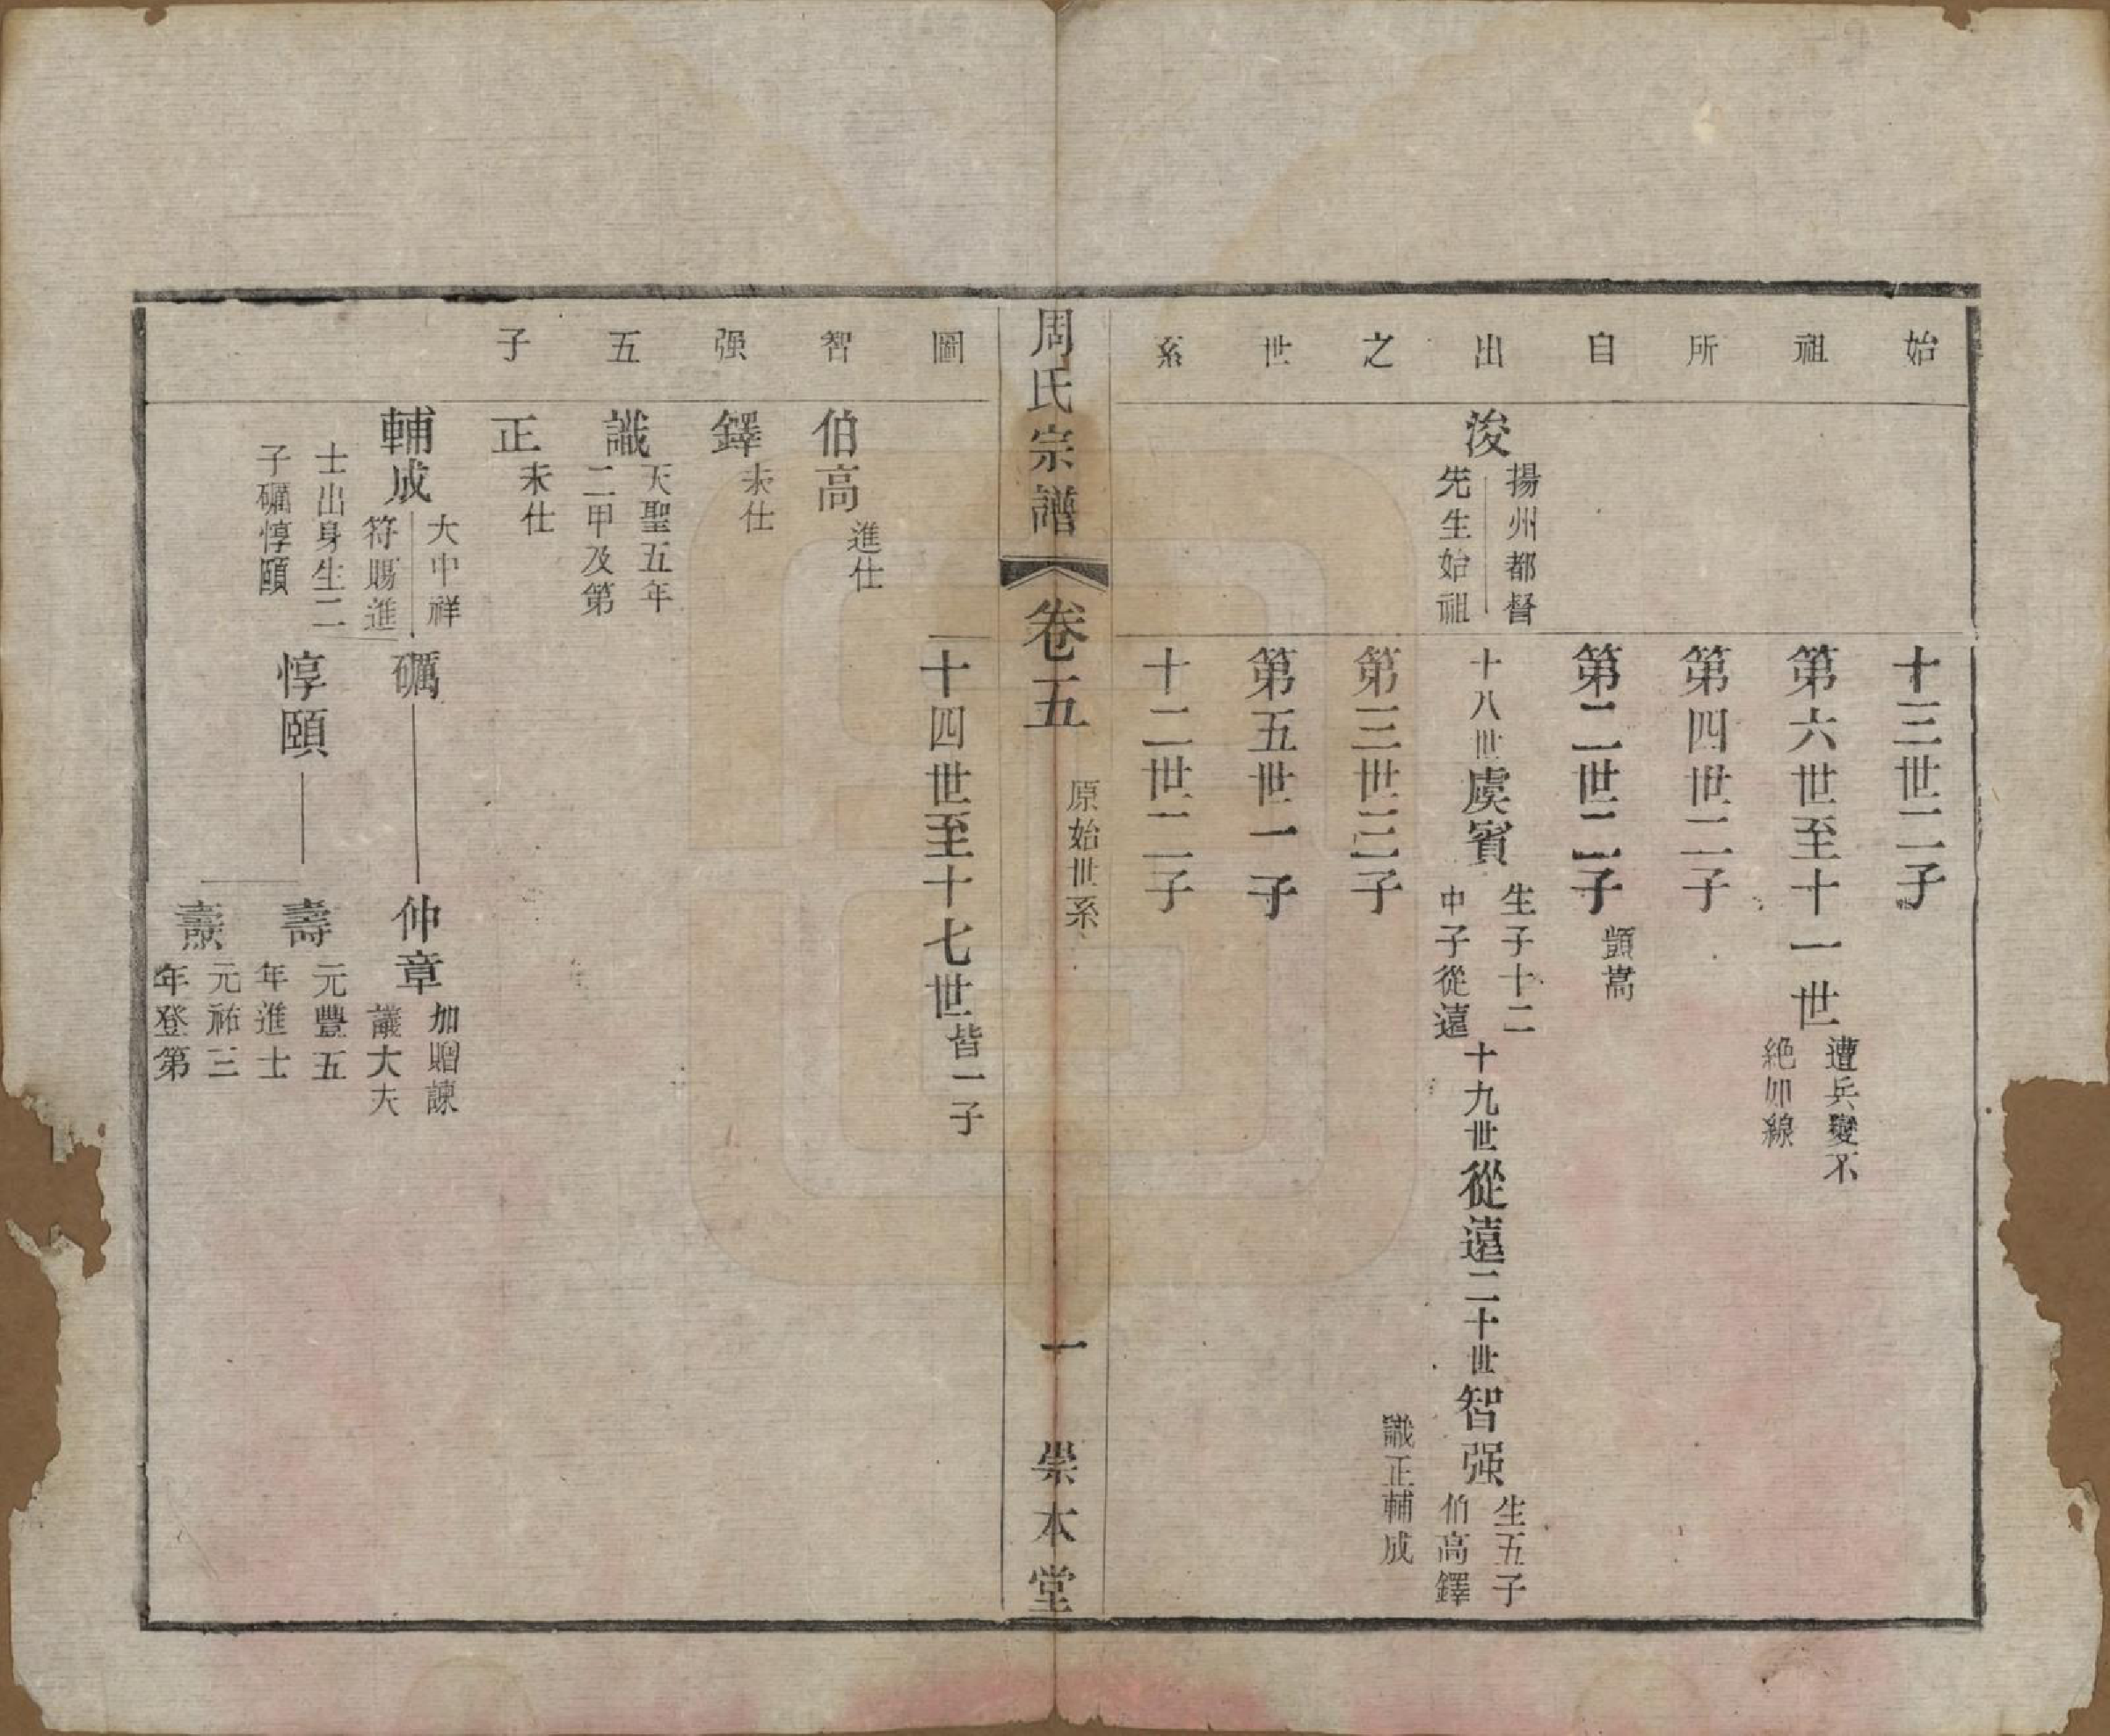 始祖所自出之世系
浚
揚州都督
先生始祖
十三世二子
第六世至十一世
遭兵變不
絶如線
第四世二子
第二世二子
顗嵩
十八世虞賓
生子十二
中子從遠
十九世從遠二十世智强
生五子
伯高鐸
識正輔成
第三世三子
第五世一子
十二世二子
周氏宗譜
卷五
原始世系
一
崇本堂
圖智强五子
十四世至十七世
皆一子
伯高
進仕
鐸
未仕
識
天聖五年
二甲及第
正
未仕
輔成
大中祥
符賜進
士出身生二
子礪惇頤
礪
仲章
加贈諫
議大夫
惇頤
壽
元豐五
年進士
燾
元祐三
年登第